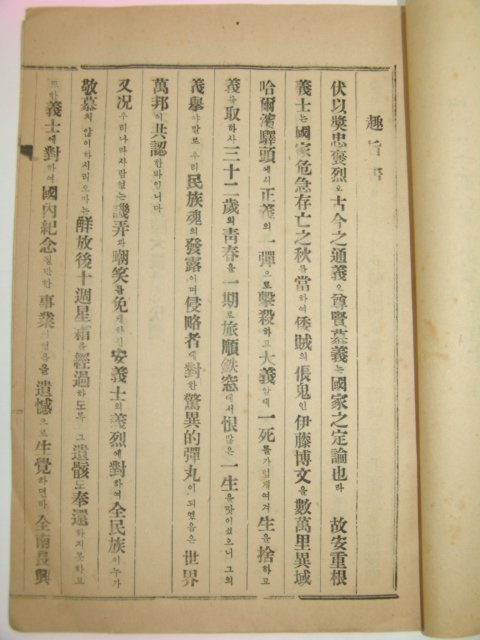 趣旨書
伏以奬忠褒烈은古今之通義오尊賢慕義는國家之定論也라 故安重根
義士는國家危急存亡之秋를當하여倭賊의倀鬼인伊藤博文을數萬里異域
哈爾濱驛頭에서正義의一彈으로擊殺하고大義앞에一死를가볍게여겨生을捨하고
義를取하사三十二歲의靑春을一期로旅順鉄窓에서恨많은一生을맞이섰으니그의
義擧야말로우리民族魂의發露이며侵略者에對한驚異的彈丸이되였음은世界
萬邦이共認한바입니다
又况우리나라사람없는譏弄과嘲笑를免케한安義士의義烈에對하여全民族이누가
敬慕치않이하시리오마는解放後十週星霜을經過하도록그遺骸도奉還하지못하고
또한義士에對하여國內紀念될만한事業이없음을遺憾으로生覺하던바全南長興